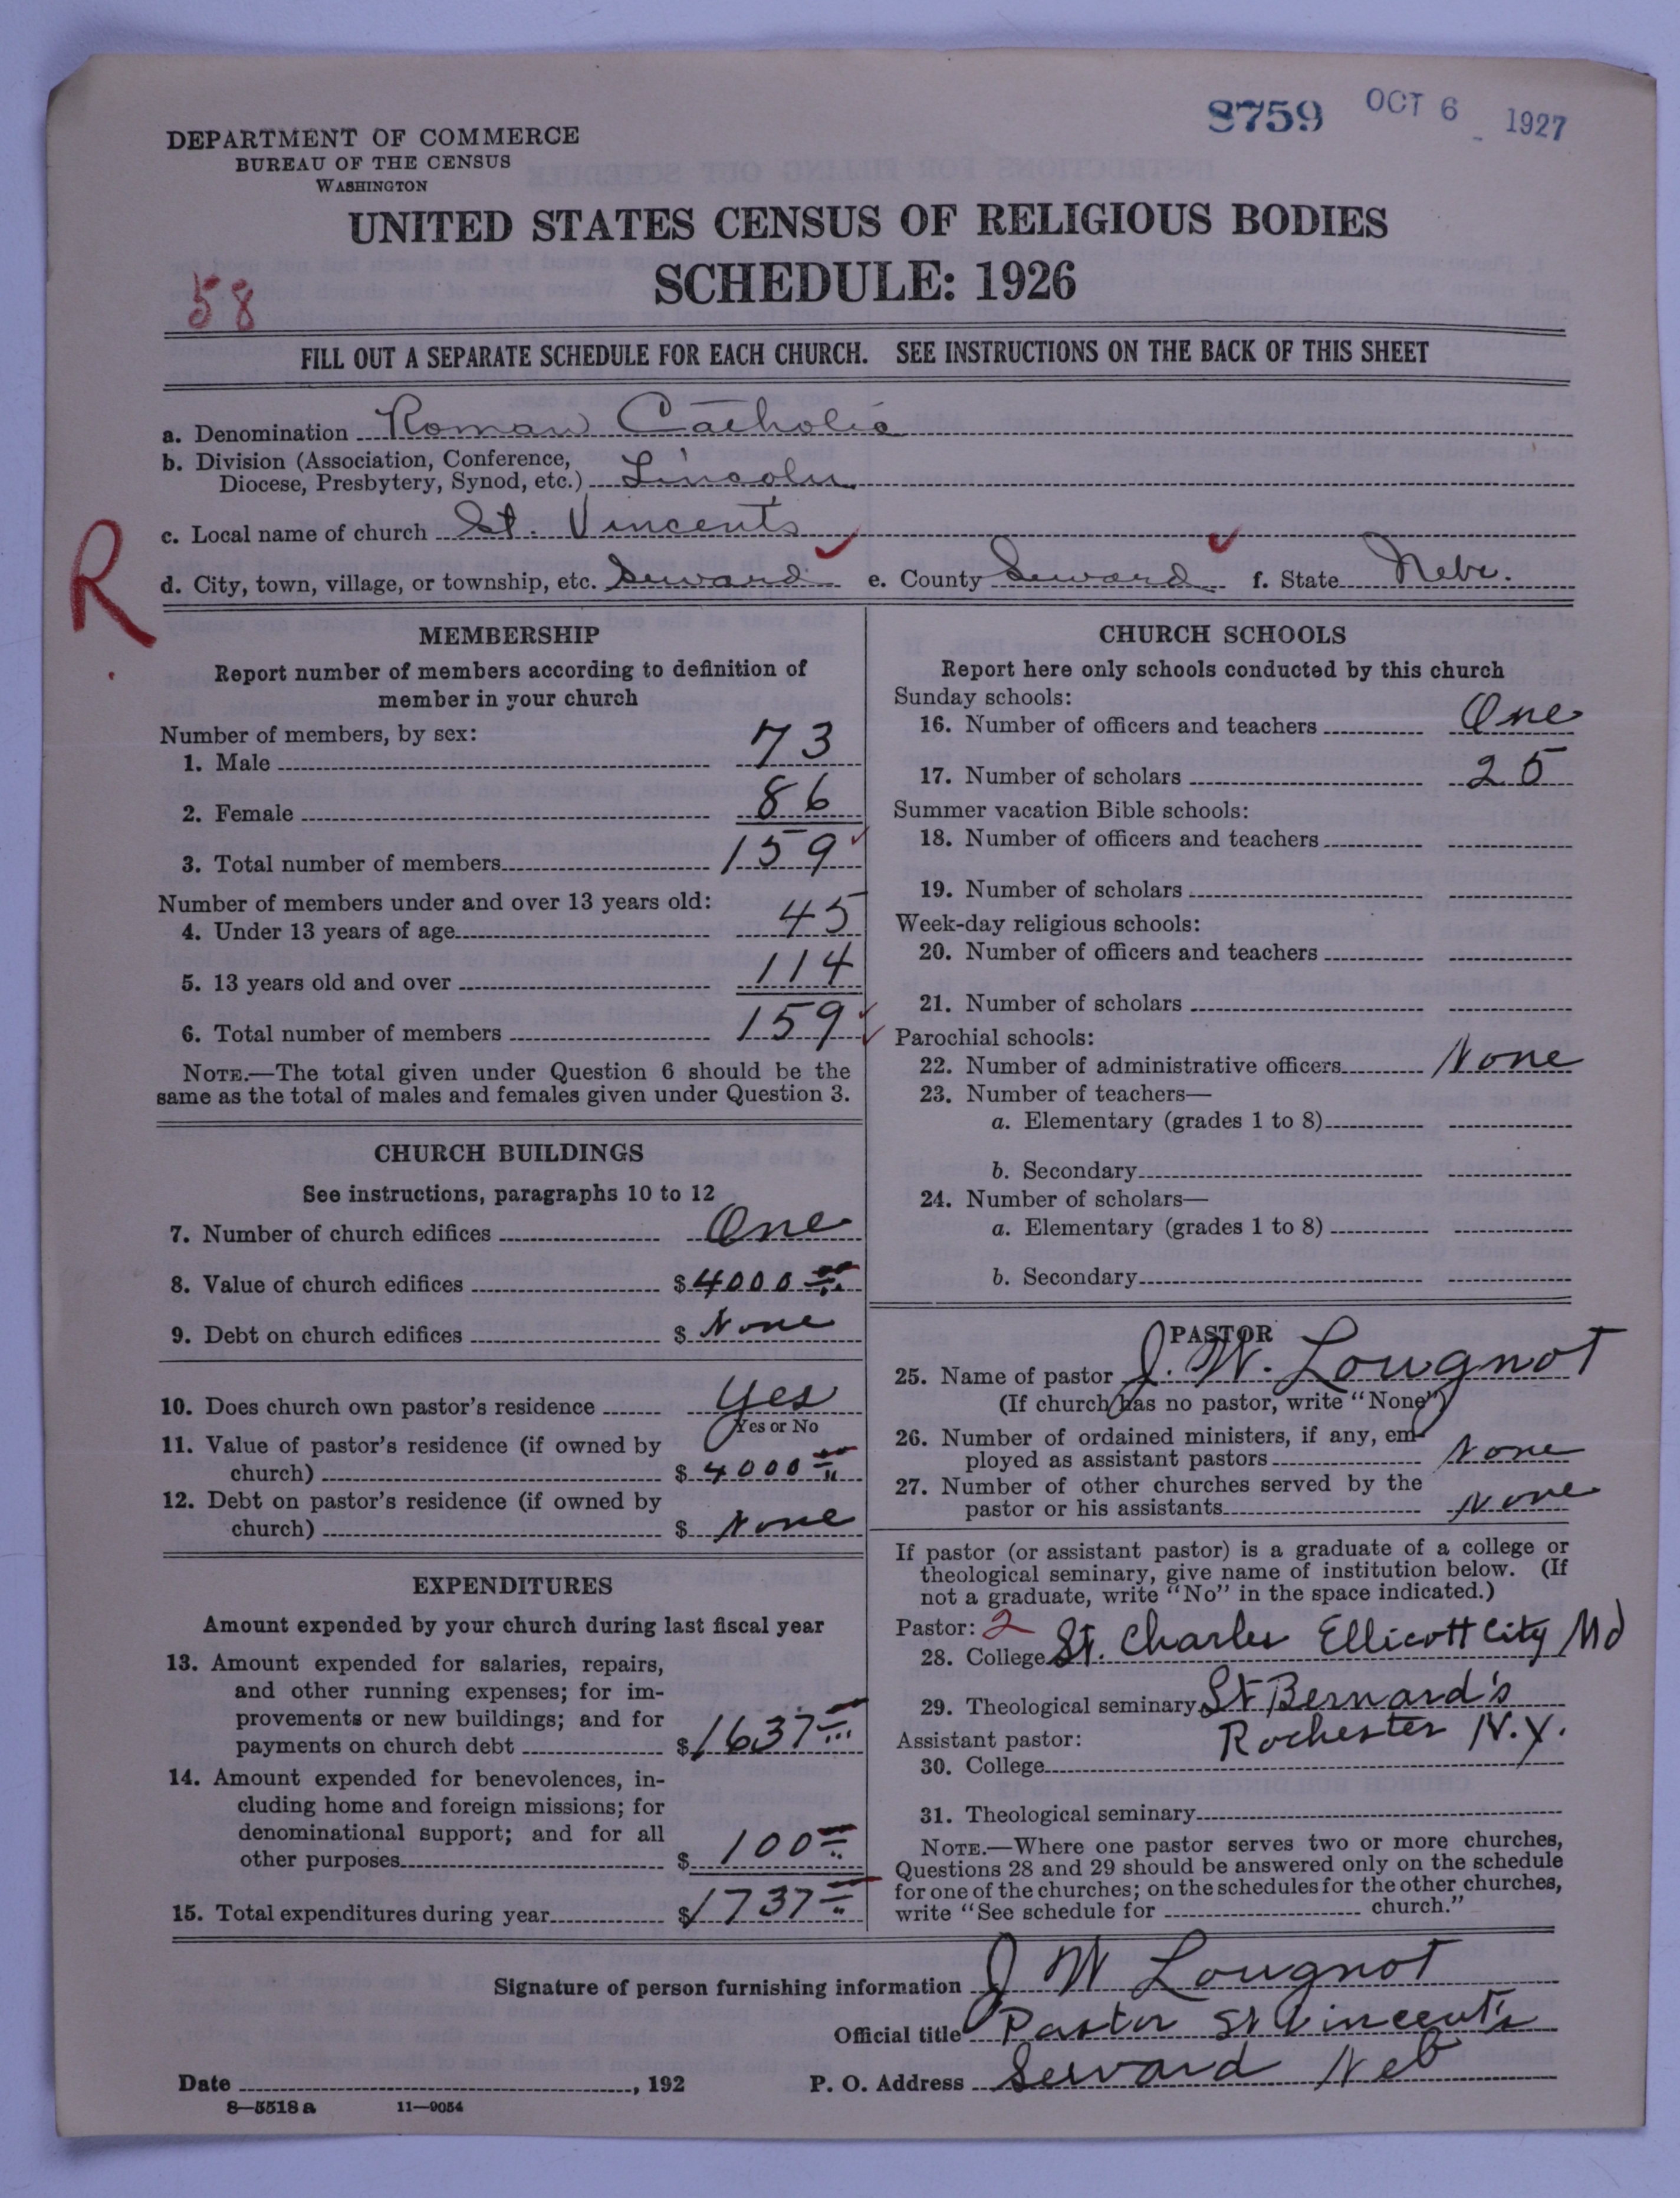 8759 OCT 6 1927
DEPARTMENT OF COMMERCE
BUREAU OF THE CENSUS
WASHINGTON
UNITED STATES CENSUS OF RELIGIOUS BODIES
SCHEDULE: 1926
58
FILL OUT A SEPARATE SCHEDULE FOR EACH CHURCH. SEE INSTRUCTIONS ON THE BACK OF THIS SHEET
a. Denomination Roman Catholic
b. Division (Association, Conference,
Diocese, Presbytery, Synod, etc.) Lincoln
c. Local name of church St. Vincents
R
d. City, town, village, or township, etc. Seward e. County Seward f. State Nebr.
MEMBERSHIP
Report number of members according to definition of
member in your church
Number of members, by sex:
1. Male 73
2. Female 86
3. Total number of members 159
Number of members under and over 13 years old:
4. Under 13 years of age 45
5. 13 years old and over 114
6. Total number of members 159
NOTE.—The total given under Question 6 should be the
same as the total of males and females given under Question 3.
CHURCH BUILDINGS
See instructions, paragraphs 10 to 12
7. Number of church edifices One
8. Value of church edifices $4000
9. Debt on church edifices $ None
10. Does church own pastor's residence yes
Yes or No
11. Value of pastor's residence (if owned by
church) $ 4000
12. Debt on pastor's residence (if owned by
church) $ None
EXPENDITURES
Amount expended by your church during last fiscal year
13. Amount expended for salaries, repairs,
and other running expenses; for im-
provements or new buildings; and for
payments on church debt $1637
14. Amount expended for benevolences, in-
cluding home and foreign missions; for
denominational support; and for all
other purposes $ 100
15. Total expenditures during year $1737
CHURCH SCHOOLS
Report here only schools conducted by this church
Sunday schools:
16. Number of officers and teachers One
17. Number of scholars 25
Summer vacation Bible schools:
18. Number of officers and teachers
19. Number of scholars
Week-day religious schools:
20. Number of officers and teachers
21. Number of scholars
Parochial schools:
22. Number of administrative officers None
23. Number of teachers—
a. Elementary (grades 1 to 8)
b. Secondary
24. Number of scholars—
a. Elementary (grades 1 to 8)
b. Secondary
PASTOR
25. Name of pastor J. W. Lougnot
(If church has no pastor, write "None")
26. Number of ordained ministers, if any, em-
ployed as assistant pastors None
27. Number of other churches served by the
pastor or his assistants None
If pastor (or assistant pastor) is a graduate of a college or
theological seminary, give name of institution below. (If
not a graduate, write "No" in the space indicated.)
Pastor: 2
28. College St. Charles Ellicott City Md
29. Theological seminary St Bernard's
Assistant pastor: Rochester N.Y.
30. College
31. Theological seminary
NOTE.—Where one pastor serves two or more churches,
Questions 28 and 29 should be answered only on the schedule
for one of the churches; on the schedules for the other churches,
write "See schedule for church."
Signature of person furnishing information J W Lougnot
Official title Pastor St Vincent's
Date , 192 P. O. Address Seward Neb
8—5518a 11—9054